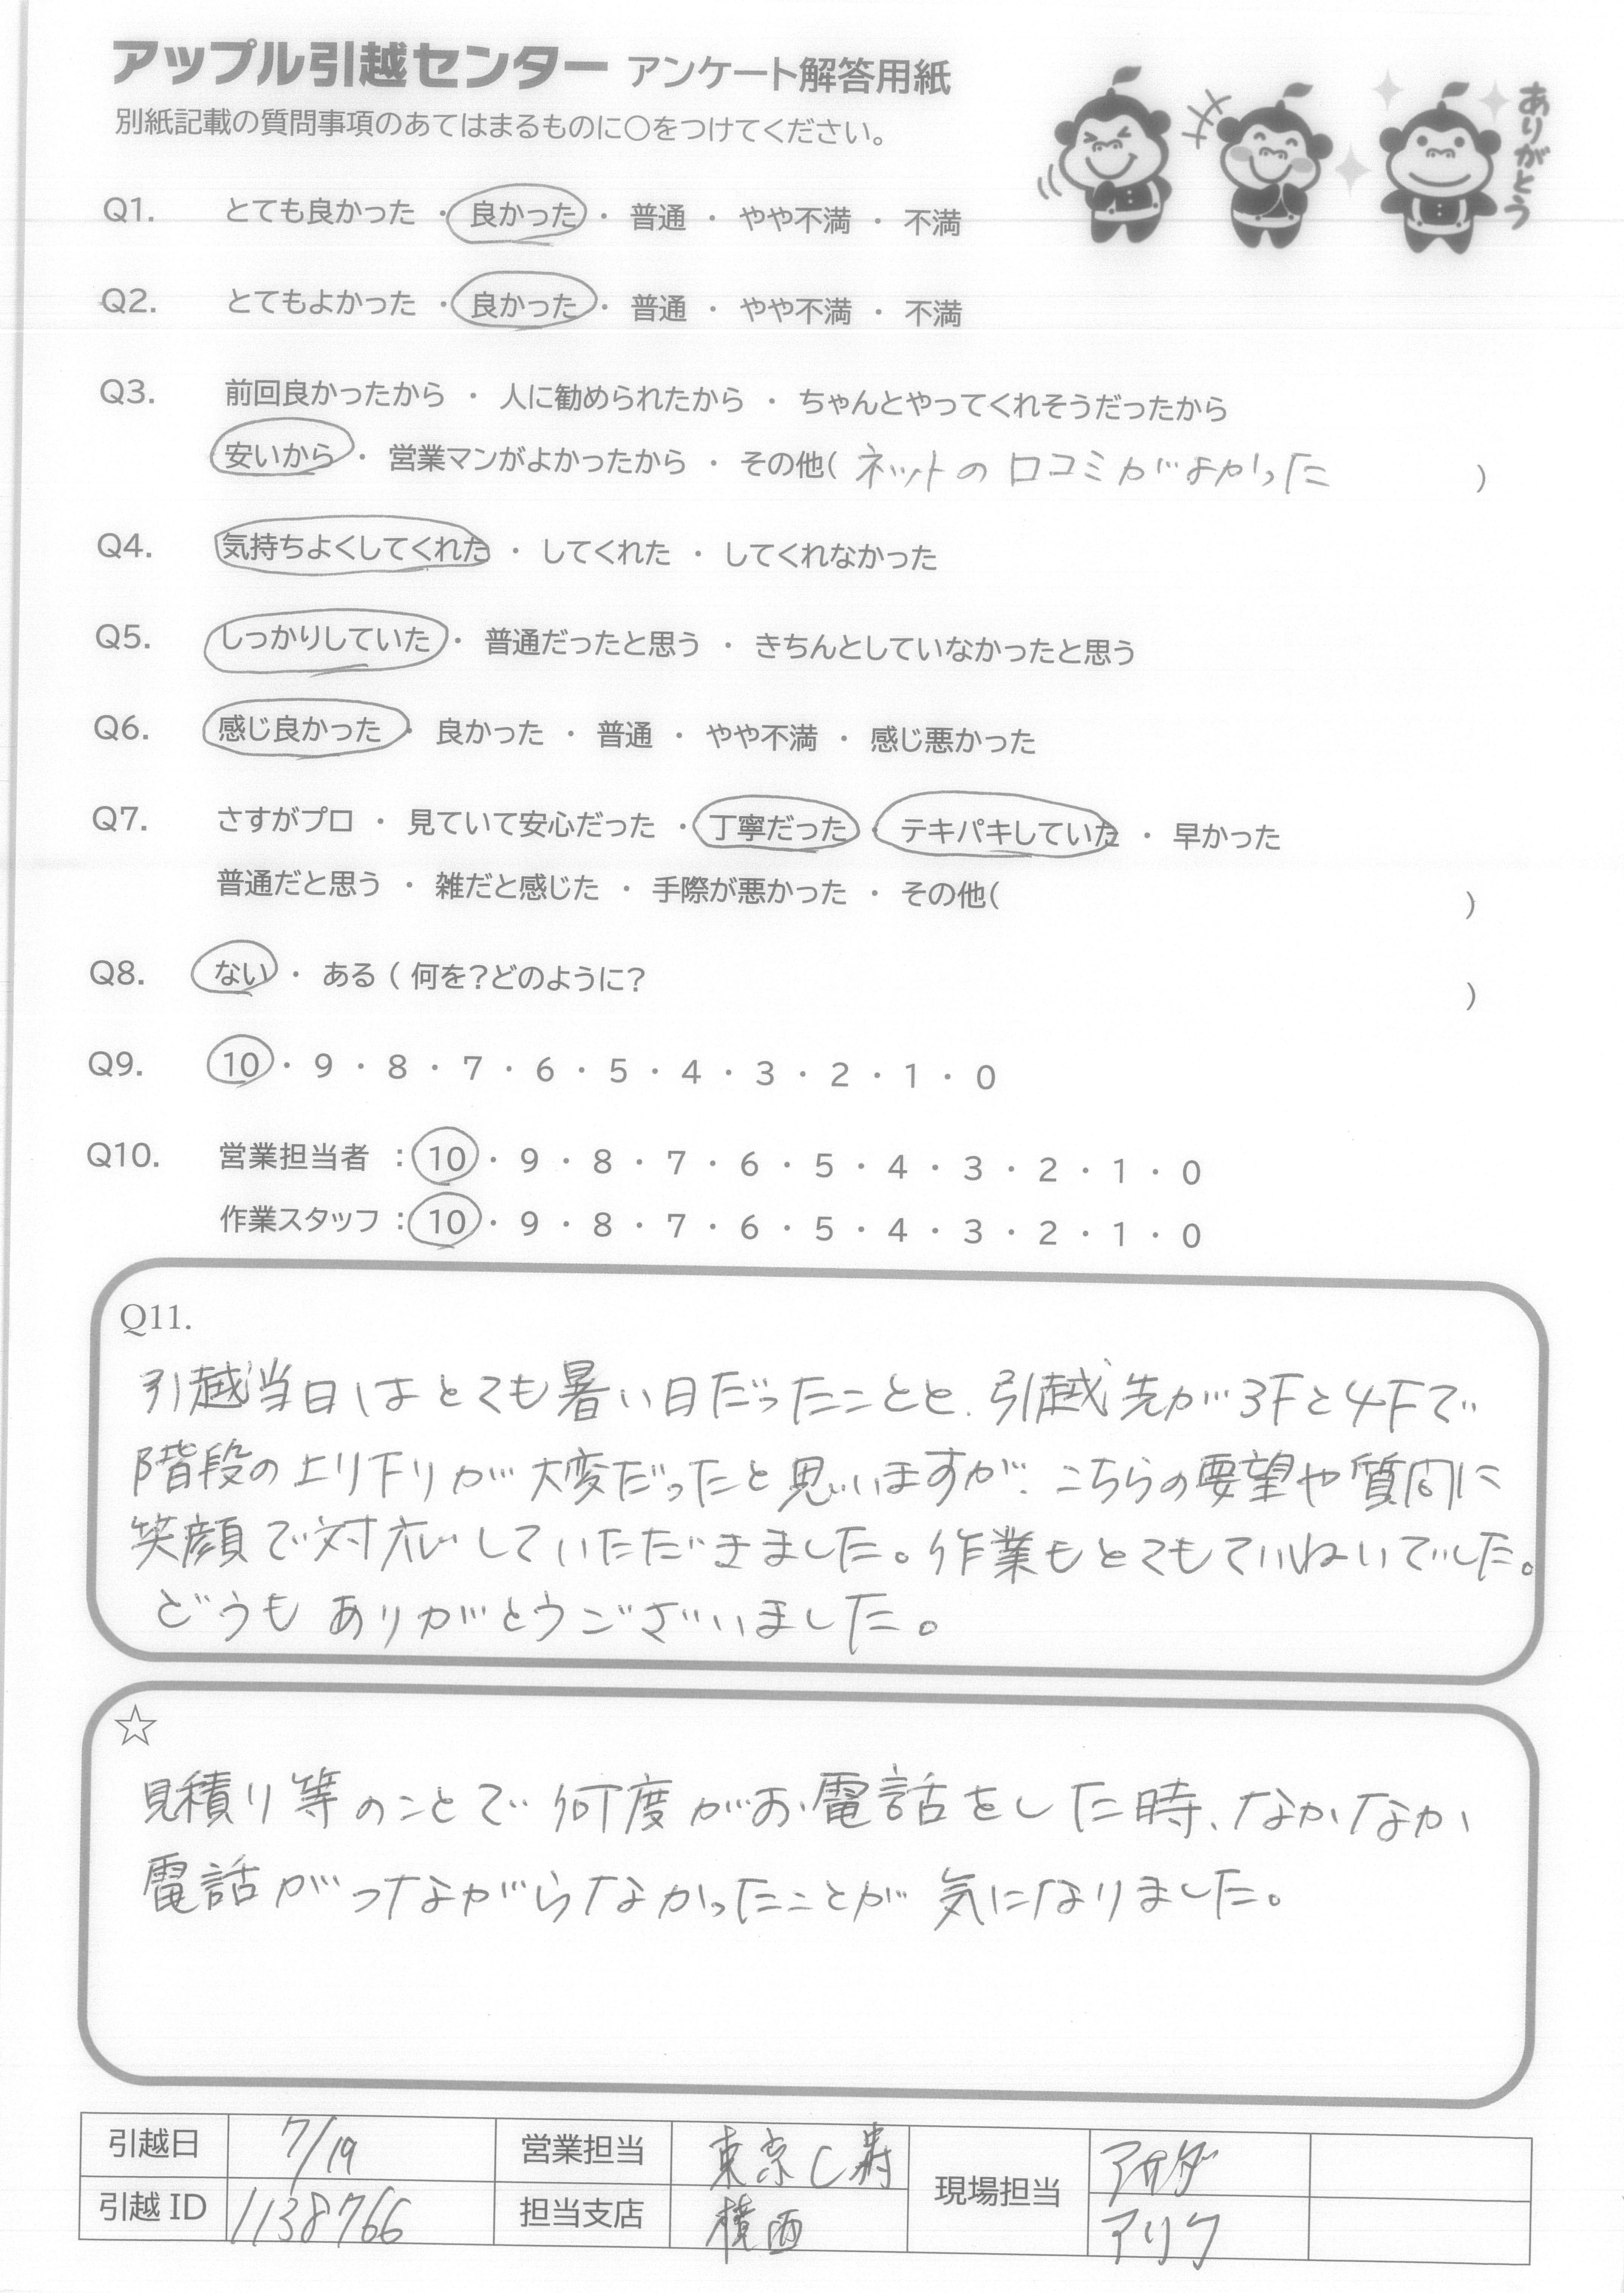 アップル引越センター アンケート解答用紙
別紙記載の質問事項のあてはまるものに○をつけてください。
ありがとう
Q1. とても良かった ・ 良かった ・ 普通 ・ やや不満 ・ 不満
Q2. とてもよかった ・ 良かった ・ 普通 ・ やや不満 ・ 不満
Q3. 前回良かったから ・ 人に勧められたから ・ ちゃんとやってくれそうだったから
安いから ・ 営業マンがよかったから ・ その他( ネットの口コミがよかった )
Q4. 気持ちよくしてくれた ・ してくれた ・ してくれなかった
Q5. しっかりしていた ・ 普通だったと思う ・ きちんとしていなかったと思う
Q6. 感じ良かった ・ 良かった ・ 普通 ・ やや不満 ・ 感じ悪かった
Q7. さすがプロ ・ 見ていて安心だった ・ 丁寧だった ・ テキパキしていた ・ 早かった
普通だと思う ・ 雑だと感じた ・ 手際が悪かった ・ その他( )
Q8. ない ・ ある ( 何を?どのように? )
Q9. 10 ・ 9 ・ 8 ・ 7 ・ 6 ・ 5 ・ 4 ・ 3 ・ 2 ・ 1 ・ 0
Q10. 営業担当者 : 10 ・ 9 ・ 8 ・ 7 ・ 6 ・ 5 ・ 4 ・ 3 ・ 2 ・ 1 ・ 0
作業スタッフ : 10 ・ 9 ・ 8 ・ 7 ・ 6 ・ 5 ・ 4 ・ 3 ・ 2 ・ 1 ・ 0
Q11.
引越当日はとても暑い日だったことと、引越先が3Fと4Fで
階段の上り下りが大変だったと思いますが、こちらの要望や質問に
笑顔で対応していただきました。作業もとてもていねいでした。
どうもありがとうございました。
☆
見積り等のことで何度がお電話をした時、なかなか
電話がつながらなかったことが気になりました。
引越日 7/19 営業担当 東京C寿 現場担当
引越ID 1138766 担当支店 横西 アリク